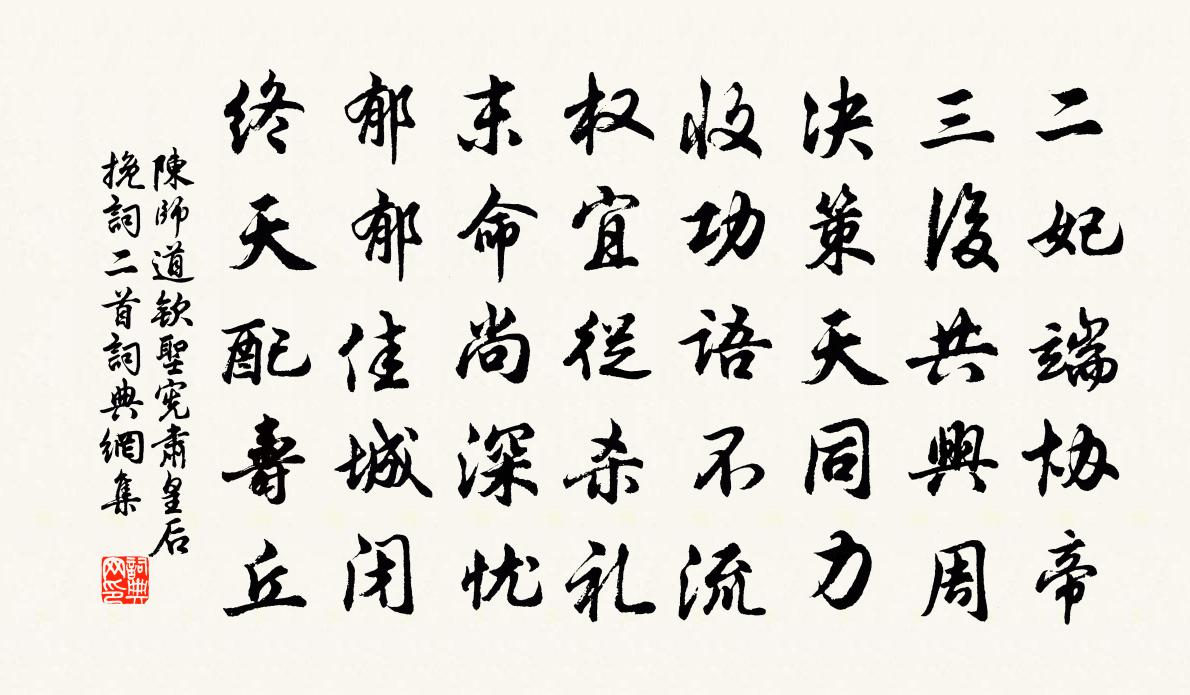 二妃端协帝
三后共興周
决策天同力
收功語不流
权宜從杀礼
末命尚深忧
郁郁佳城闭
终天配壽丘
陳師道欽聖宪肅皇后
挽詞二首詞典網集
詞典网印